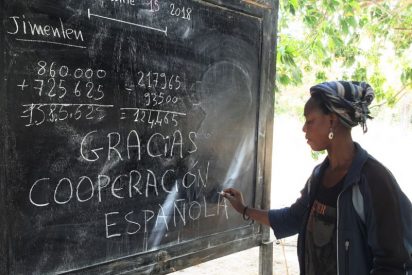 15 2018
Jimenten
860.000
+ 725625
1585.625
- 217965
93500
= 124465
GRACIAS
COOPERACION
ESPAÑOLA